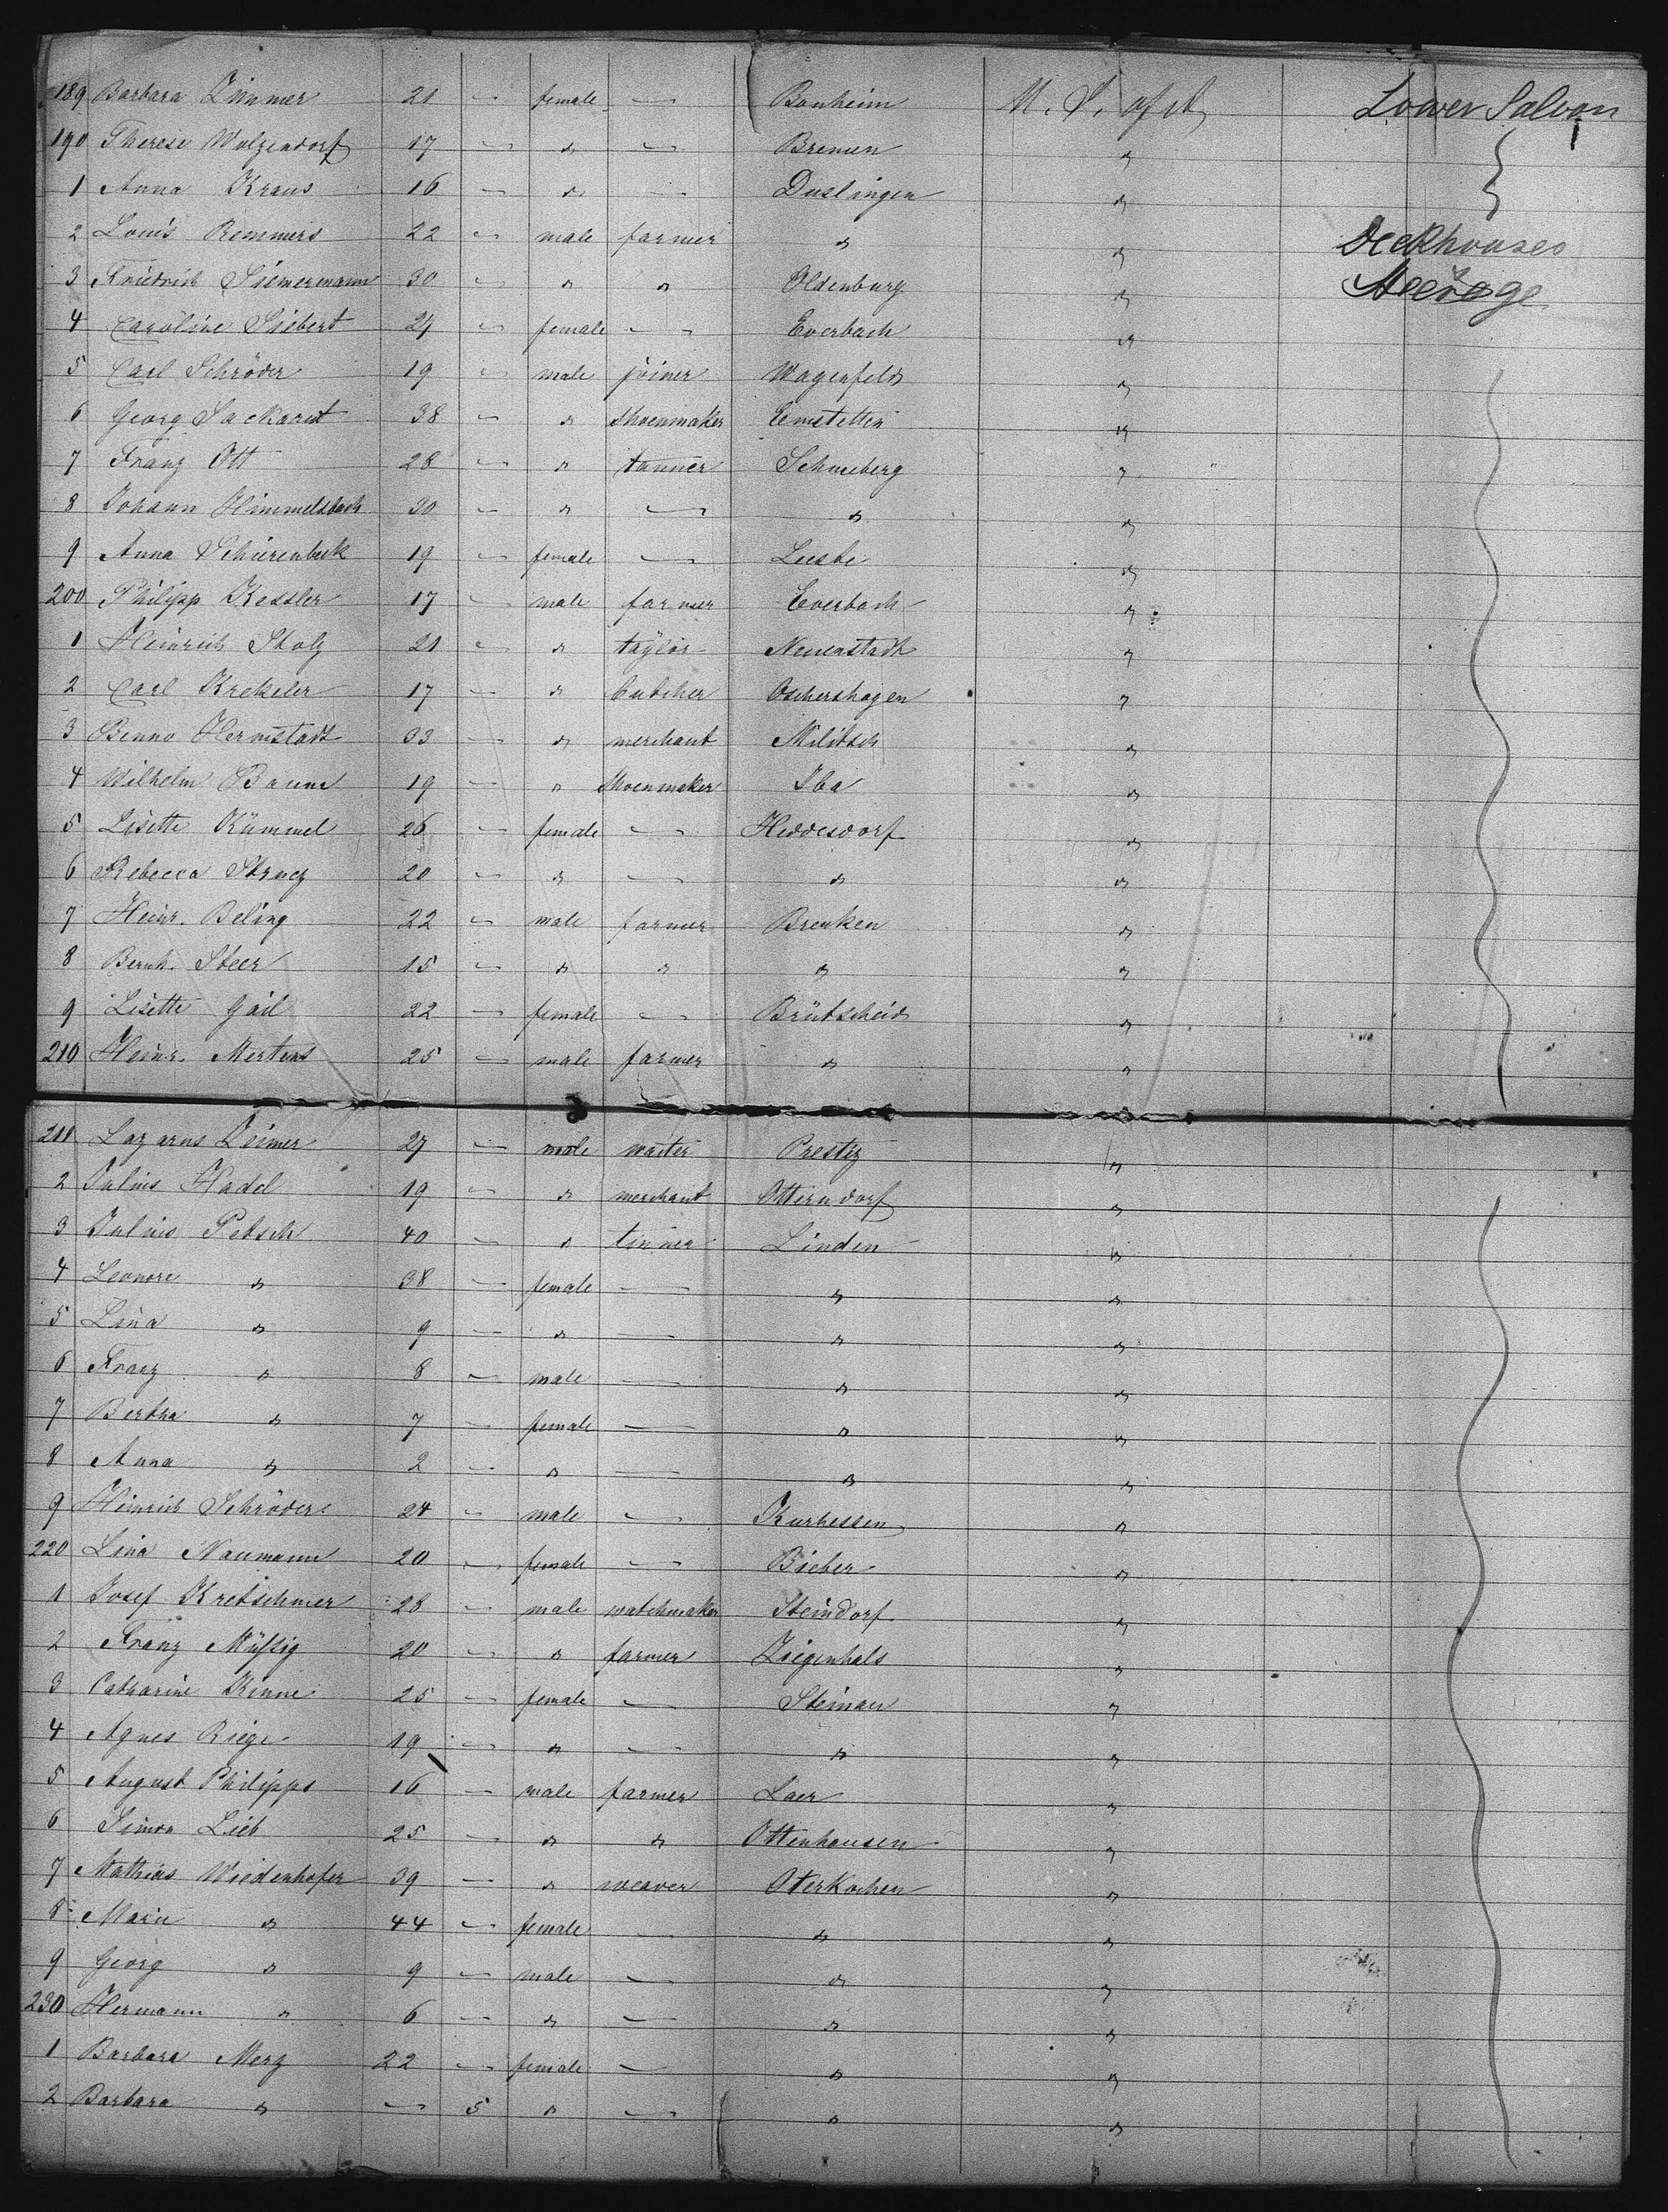 189 Barbara Zimmer 21 — female — Bonheim U. S. of A. Lower Saloon
190 Therese Wolzendorf 17 — " — Bremen "
1 Anna Kraus 16 — " — Duslingen "
2 Louis Remmers 22 — male farmer " " Deckhouses
3 Friedrich Siemermann 30 — " " Oldenburg " Steerage
4 Caroline Siebert 24 — female — Everbach "
5 Carl Schröder 19 — male joiner Wagenfeld "
6 Georg Sackarnt 38 — " shoenmaker Ernstetten "
7 Franz Ott 28 — " tanner Schneeberg "
8 Johann Himmelsbach 30 — " — " "
9 Anna Schierenbeck 19 — female — Leeste "
200 Philipp Kessler 17 — male farmer Everbach "
1 Heinrich Stolz 21 — " taylor Neuenstadt "
2 Carl Krekeler 17 — " butcher Oschershagen "
3 Benno Hermstadt 33 — " merchant Militsch "
4 Wilhelm Baum 19 — " shoenmaker Iba "
5 Lisette Kümmel 26 — female — Heddesdorf "
6 Rebecca 20 — " — " "
7 Heinr. Beling 22 — male farmer Brenken "
8 Bernh. Steer 15 — " " " "
9 Lisette Gail 22 — female — Brütscheid "
210 Heinr. Mertens 25 — male farmer " "
211 Lazarus Zeimer 27 — male waiter Prestiz "
2 Julius Hadel 19 — " merchant Otterndorf "
3 Julius Petsch 40 — " tinner Linden "
4 Leonore " 38 — female — " "
5 Lina " 9 — " — " "
6 Franz " 8 — male — " "
7 Bertha " 7 — female — " "
8 Anna " 2 — " — " "
9 Heinrich Schröder 24 — male — Kurhessen "
220 Lina Naumann 20 — female — Bieber "
1 Josef Kretschmer 28 — male watchmaker Steindorf "
2 Franz Müssig 20 — " farmer Ziegenhals "
3 Catharine Kinne 25 — female — Steinau "
4 Agnes Riege 19 — " — " "
5 August Philipps 16 — male farmer Laer "
6 Simon Lieb 25 — " " Ottenhausen "
7 Mathias Wiedenhofer 39 — " weaver Oterkochen "
8 Marie " 44 — female — " "
9 Georg " 9 — male — " "
230 Hermann " 6 — " — " "
1 Barbara Merz 22 — female — " "
2 Barbara " — 5 " — " "